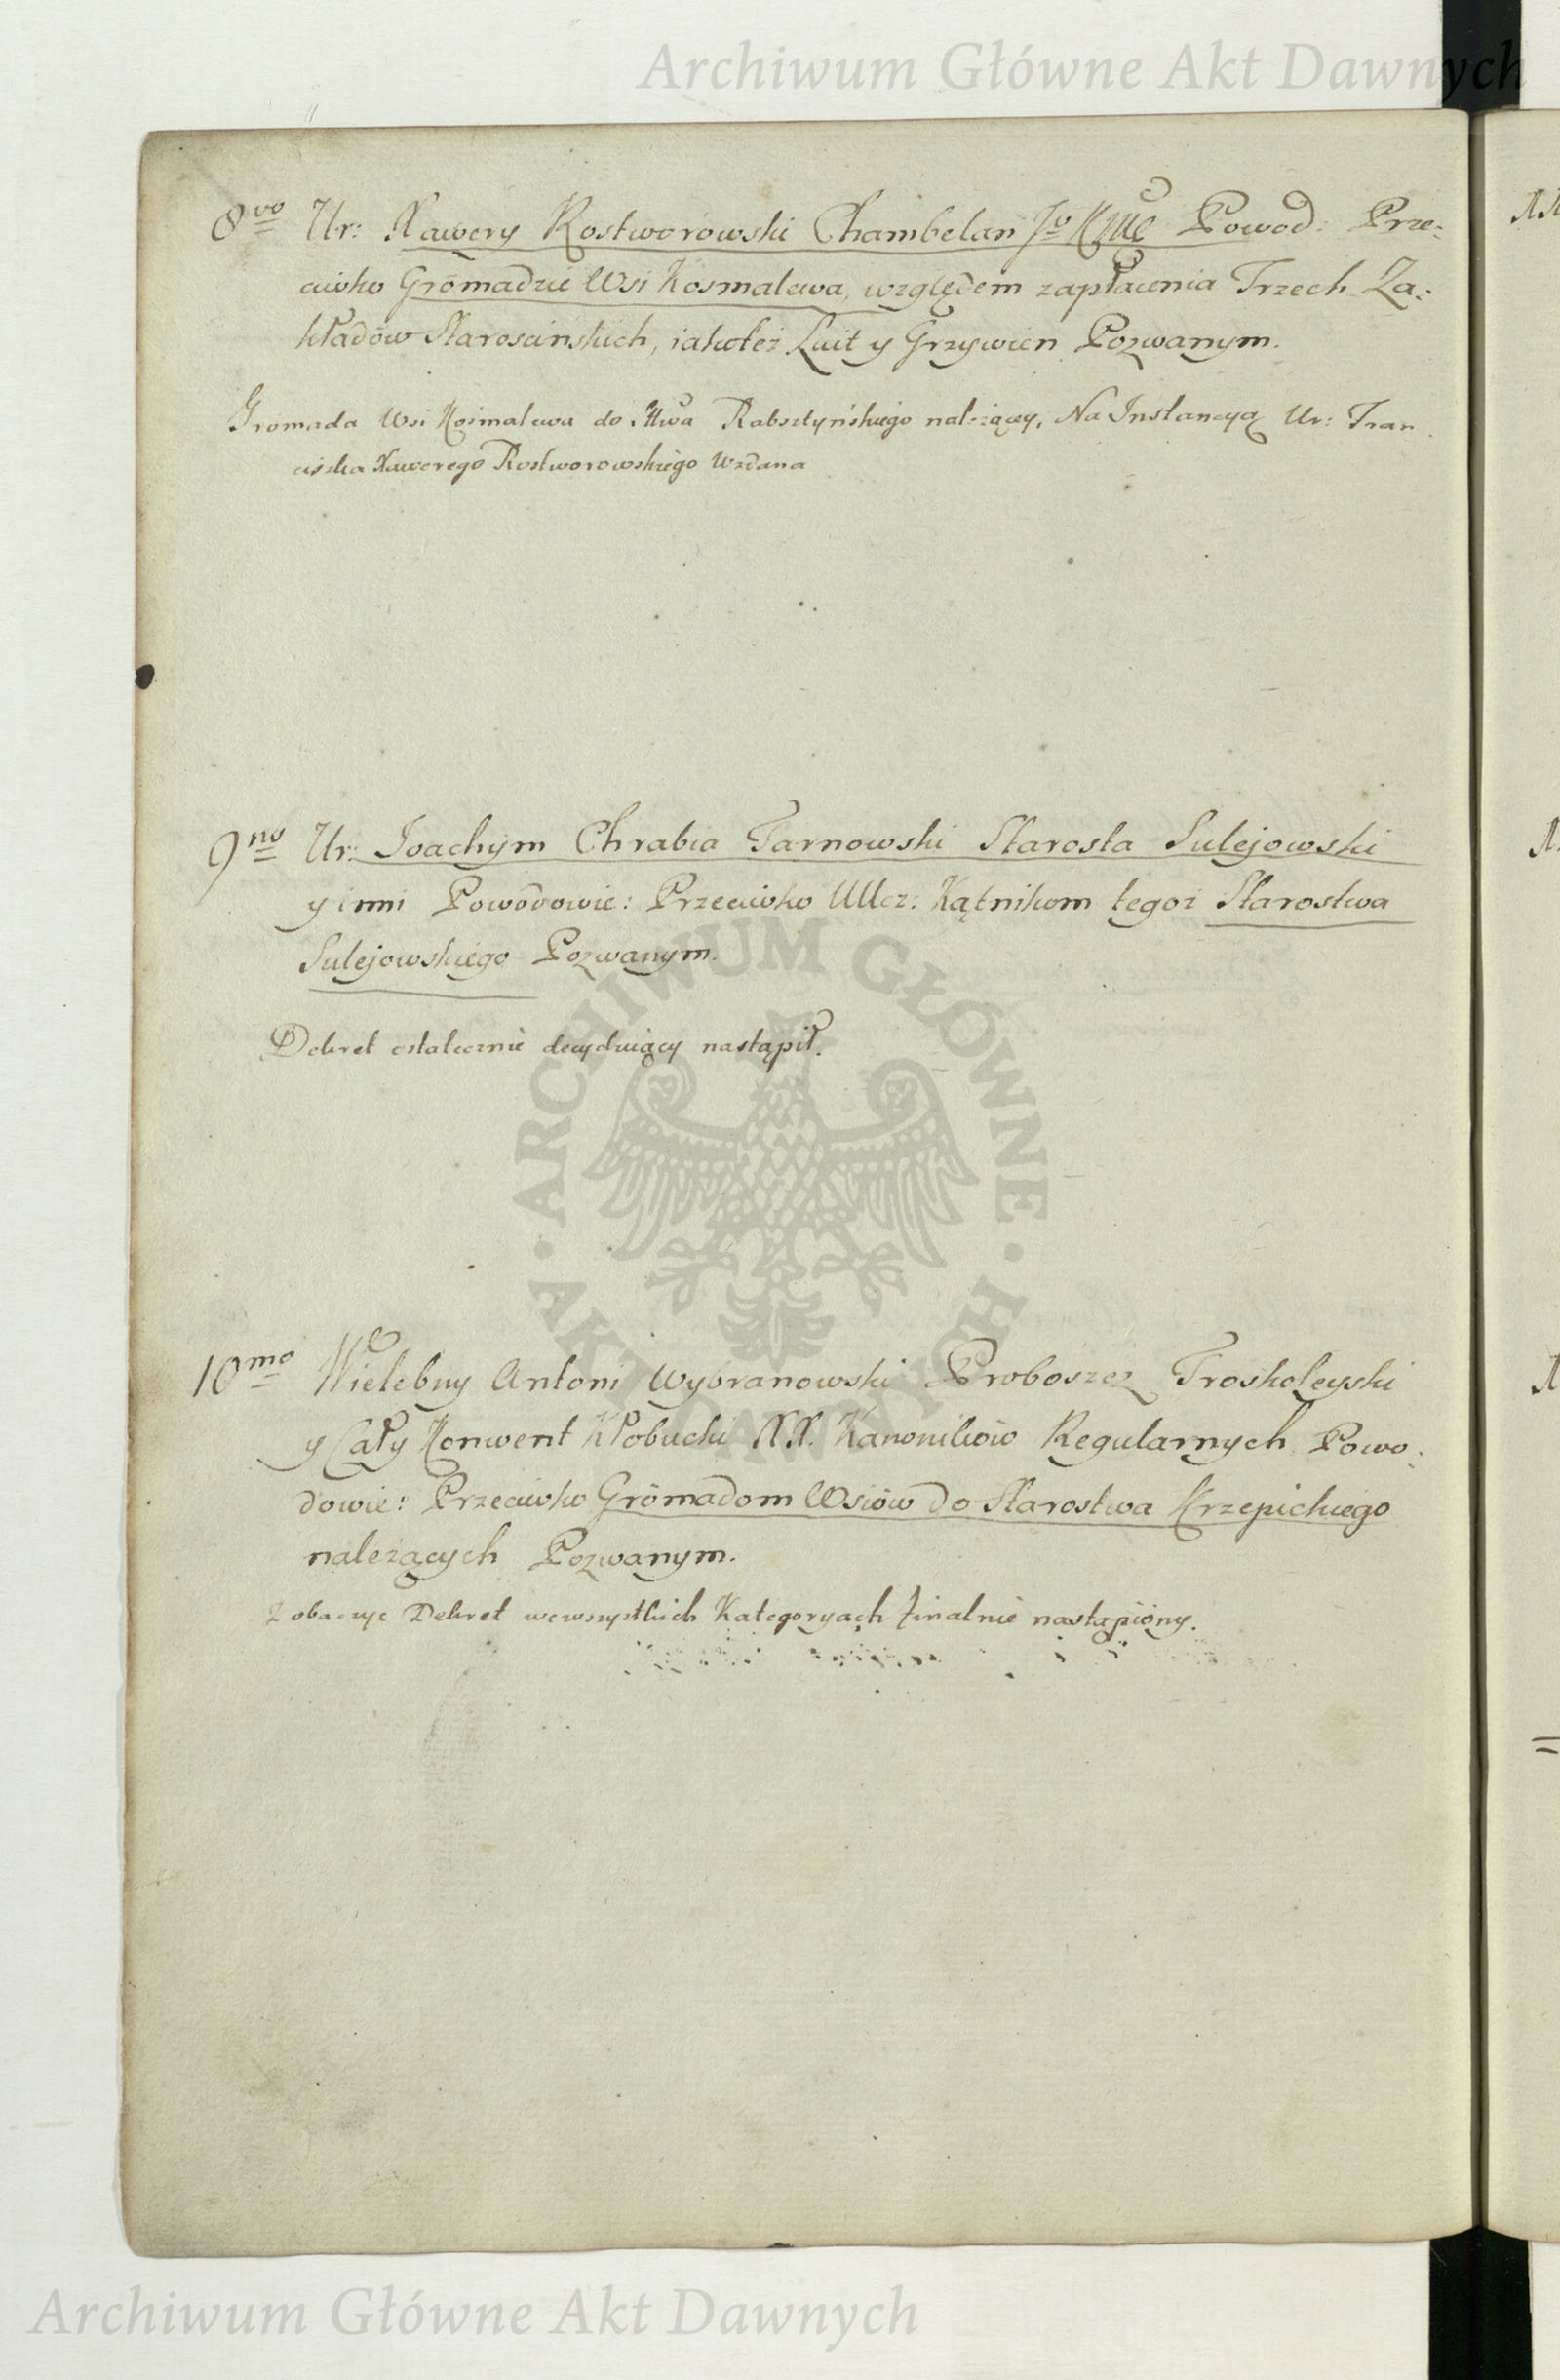 Archiwum Główne Akt Dawnych
8vo Ur: Xawery Rostworowski Chambelan Powod: Prze-
ciwko Gromadzie Wsi Kosmalewa, względem zapłacenia Trzech Za-
kładow Staroscinskich, iakoteż y Grzywien Pozwanym.
Gromada Wsi Kosmalewa do Sttwa Rabsztyńskiego należący, Na Instancyą Ur: Fran
ciszka Xawerego Rostworowskiego Wzdana
9no Ur: Joachym Chrabia Tarnowski Starosta Sulejowski
y inni Powodowie: Przeciwko UUcz: Kątnikom tegoż Starostwa
Sulejowskiego Pozwanym.
Dekret ostatecznie decyduiący nastąpił.
10mo Wielebny Antoni Wybranowski Proboszcz Troskoleyski
y Cały Konwent Kłobucki XX. Kanonikow Regularnych Powo-
dowie: Przeciwko Gromadom Wsiow do Starostwa Krzepickiego
należących Pozwanym.
Zobaczyc Dekret wewszystkich Kategoryach finalnie nastąpiony.
ARCHIWUM GŁÓWNE AKT DAWNYCH
Archiwum Główne Akt Dawnych